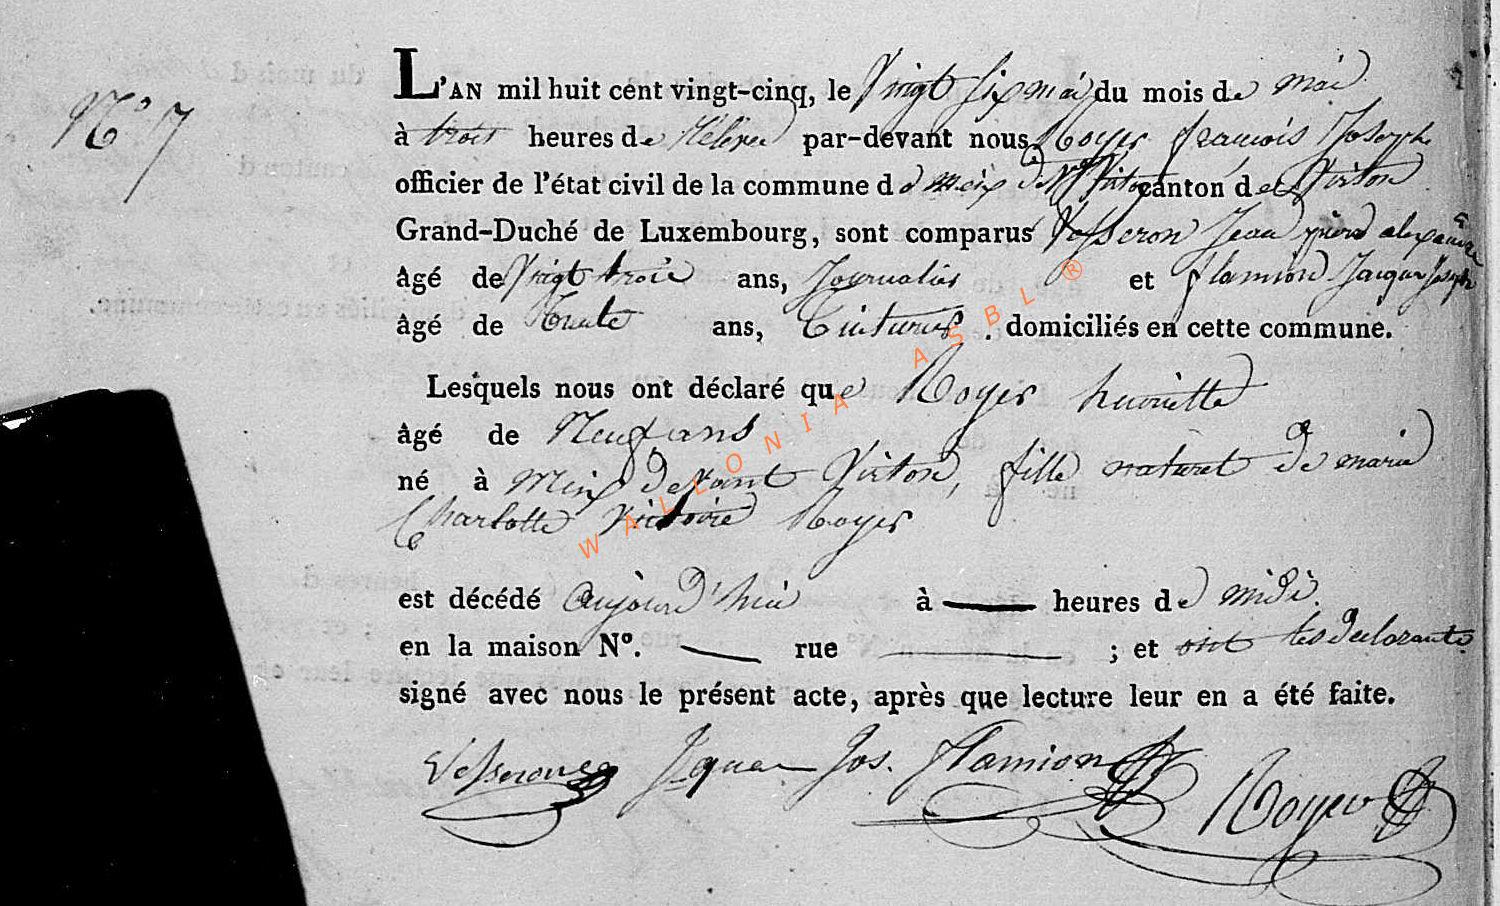 N° 7
L'AN mil huit cent vingt-cinq, le Vingt six mai du mois de mai
à trois heures de rélévée par-devant nous Royer francois Joseph
officier de l'état civil de la commune d e meix dvt Virton canton de Virton
Grand-Duché de Luxembourg, sont comparus Vesseron Jean pierre alexandre
âgé de Vingt trois ans, Journalier et flamion Jacques Joseph
âgé de Trente ans, . domiciliés en cette commune.
Lesquels nous ont déclaré que Royer henriette
âgé de Neuf ans
né à Meix devant Virton, fille naturel de marie
Charlotte Victoire Royer
est décédé aujourd'hui à heures de midi
en la maison N°. rue ; et ont les declarants
signé avec nous le présent acte, après que lecture leur en a été faite.
Vesseron Jos. flamion Royer
WALLONIA ASBL ®